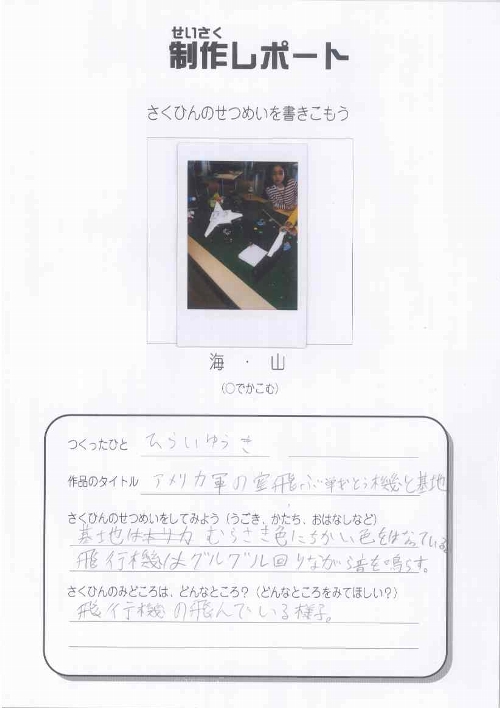 せいさく
制作レポート
さくひんのせつめいを書きこもう
海 ・ 山
(○でかこむ)
つくったひと ひらいゆうき
作品のタイトル アメリカ軍の空飛ぶ戦とう機と基地
さくひんのせつめいをしてみよう (うごき、かたち、おはなしなど)
基地は むらさき色にちかい色をはなっている
飛行機はグルグル回りながら音を鳴らす。
さくひんのみどころは、どんなところ? (どんなところをみてほしい?)
飛行機の飛んでいる様子。